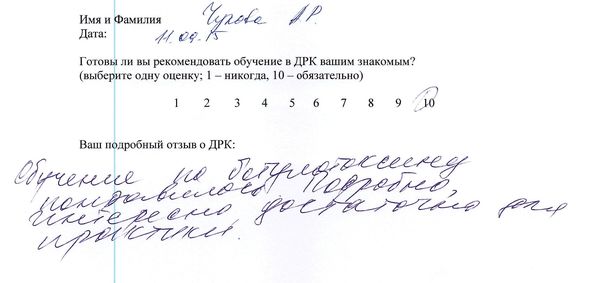 Имя и Фамилия Чурова АР.
Дата: 11.09.15
Готовы ли вы рекомендовать обучение в ДРК вашим знакомым?
(выберите одну оценку; 1 – никогда, 10 – обязательно)
1 2 3 4 5 6 7 8 9 10
Ваш подробный отзыв о ДРК:
Обучение по ботулотоксину
понравилось. Подробно,
интересно достаточно для
практики.